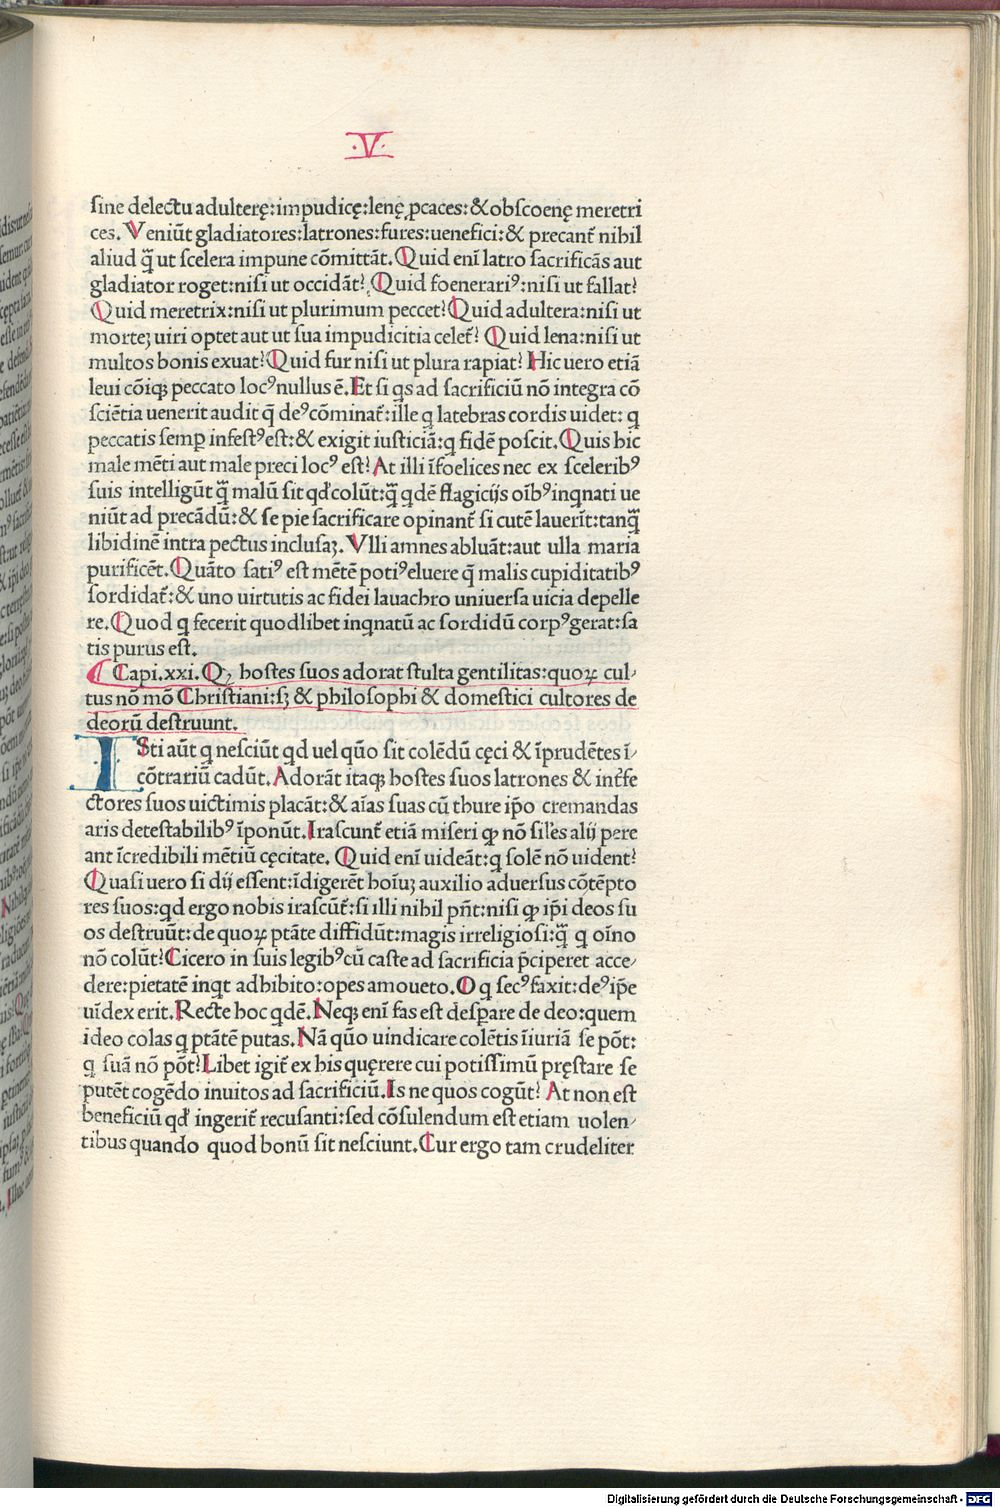 .V.
ſine delectu adulterę:impudicę:lenę ꝓcaces:&obſcoenę meretri
ces. Veniūt gladiatores:latrones:fures:uenefici:& precant̃ nihil
aliud q̃ꝫ ut ſcelera impune cōmittāt. Quid enī latro ſacrificās aut
gladiator roget:niſi ut occidāt? Quid foenerariꝰ:niſi ut fallat?
Quid meretrix:niſi ut plurimum peccet? Quid adultera:niſi ut
morteꝫ uiri optet aut ut ſua impudicitia celet̃? Quid lena:niſi ut
multos bonis exuat? Quid fur niſi ut plura rapiat? Hic uero etiā
leui cōiqꝫ peccato locꝰ nullus ē. Et ſi qs ad ſacrificiū nō integra cō
ſciētia uenerit audit q̄ deꝰ cōminat̃:ille q latebras cordis uidet: q
peccatis ſemꝑ infeſtꝰ eſt:& exigit iuſticiā:q fidē poſcit. Quis hic
male mēti aut male preci locꝰ eſt? At illi īfoelices nec ex ſceleribꝰ
ſuis intelligūt q̃ꝫ malū ſit qđ colūt:q̃ꝫ qdē flagicijs oībꝰ inqnati ue
niūt ad precādū:& ſe pie ſacrificare opinant̃ ſi cutē lauerīt:tanq̃ꝫ
libidinē intra pectus inclusaꝫ. Vlli amnes abluāt:aut ulla maria
purificēt. Quāto ſatiꝰ eſt mētē potiꝰ eluere q̄ malis cupiditatibꝰ
ſordidat̃:& uno uirtutis ac fidei lauachro uniuerſa uicia depelle
re. Quod q fecerit quodlibet inqnatū ac ſordidū corpꝰ gerat:ſa
tis purus eſt.
Capi.xxi. Qꝫ hostes suos adorat ſtulta gentilitas:quoꝝ cul⸗
tus nō mō Chriſtiani:ſꝫ & philoſophi & domeſtici cultores de
deorū deſtruunt.
ISti aūt q neſciūt qd uel quō ſit colēdū cęci & īprudētes ī
cōtrariū cadūt. Adorāt itaqꝫ hoſtes ſuos latrones & int̃fe
ctores ſuos uictimis placāt:& aīas ſuas cū thure ip̄o cremandas
aris deteſtabilibꝰ īponūt. Iraſcunt̃ etiā miſeri ꝙ nō ſil̃es alij pere
ant īcredibili mētiū cęcitate. Quid enī uideāt:q ſolē nō uident?
Quaſi uero ſi dij eſſent:īdigerēt hoīuꝫ auxilio aduerſus cōtēpto
res ſuos:qd ergo nobis iraſcūt̃:ſi illi nihil pn̄t:niſi ꝙ ip̄i deos ſu
os deſtruūt:de quoꝝ ptāte diffidūt:magis irreligioſi:q̃ꝫ q oīno
nō colūt? Cicero in ſuis legibꝰ cū caſte ad ſacrificia p̄ciperet acce⸗
dere:pietatē inqt adhibito:opes amoueto. O q ſecꝰ faxit:deꝰ ip̄e
uīdex erit. Recte hoc qdē. Neqꝫ enī fas eſt deſꝑare de deo:quem
ideo colas q ptātē putas. Nā quō uindicare colētis īiuriā ſe pōt:
q ſuā nō pōt? Libet igit̃ ex his quęrere cui potiſſimū pręſtare ſe
putēt cogēdo inuitos ad ſacrificiū. Is ne quos cogūt? At non eſt
beneficiū qđ ingerit̃ recuſanti:ſed cōſulendum eſt etiam uolen⸗
tibus quando quod bonū ſit neſciunt. Cur ergo tam crudeliter
Digitalisierung gefördert durch die Deutsche Forschungsgemeinschaft - DFG